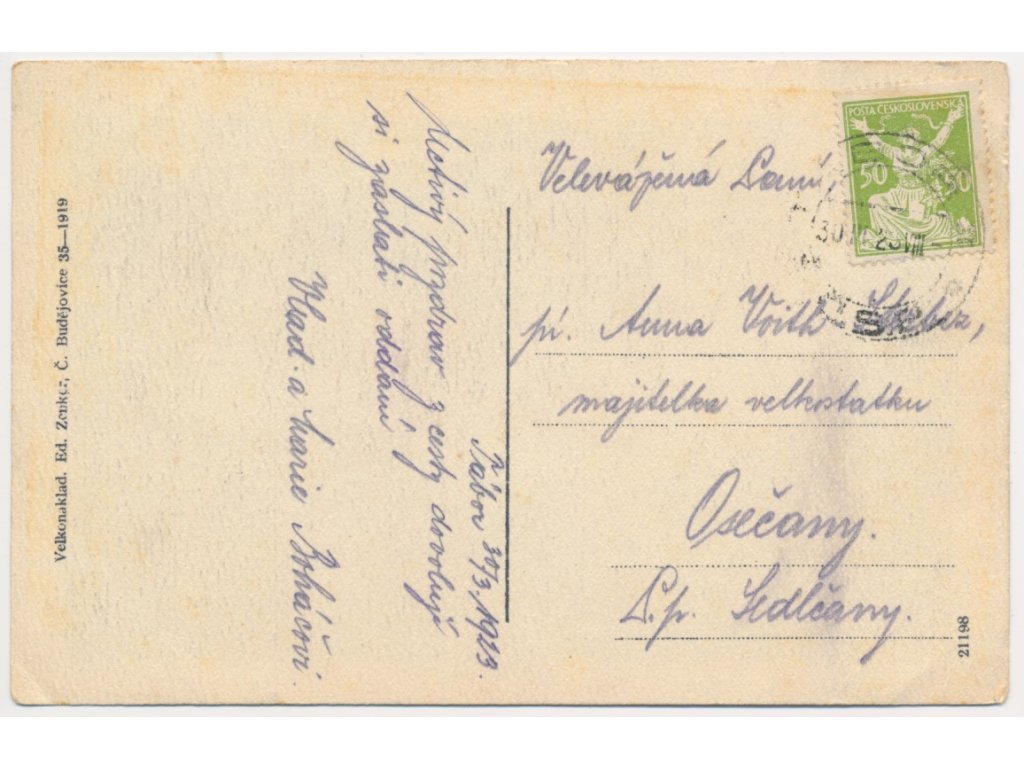 Velkonaklad. Ed. Zenker, Č. Budějovice 35—1919
Tábor 30/3. 1923.
Uctivý pozdrav z cesty dovolují
si zaslati oddaní
Vlad. a Marie Boháčovi.
POŠTA ČESKOSLOVENSKÁ
50 50
Velevážená Paní,
pí. Anna Voith
majitelka velkostatku
Osečany.
P. p. Sedlčany.
21198